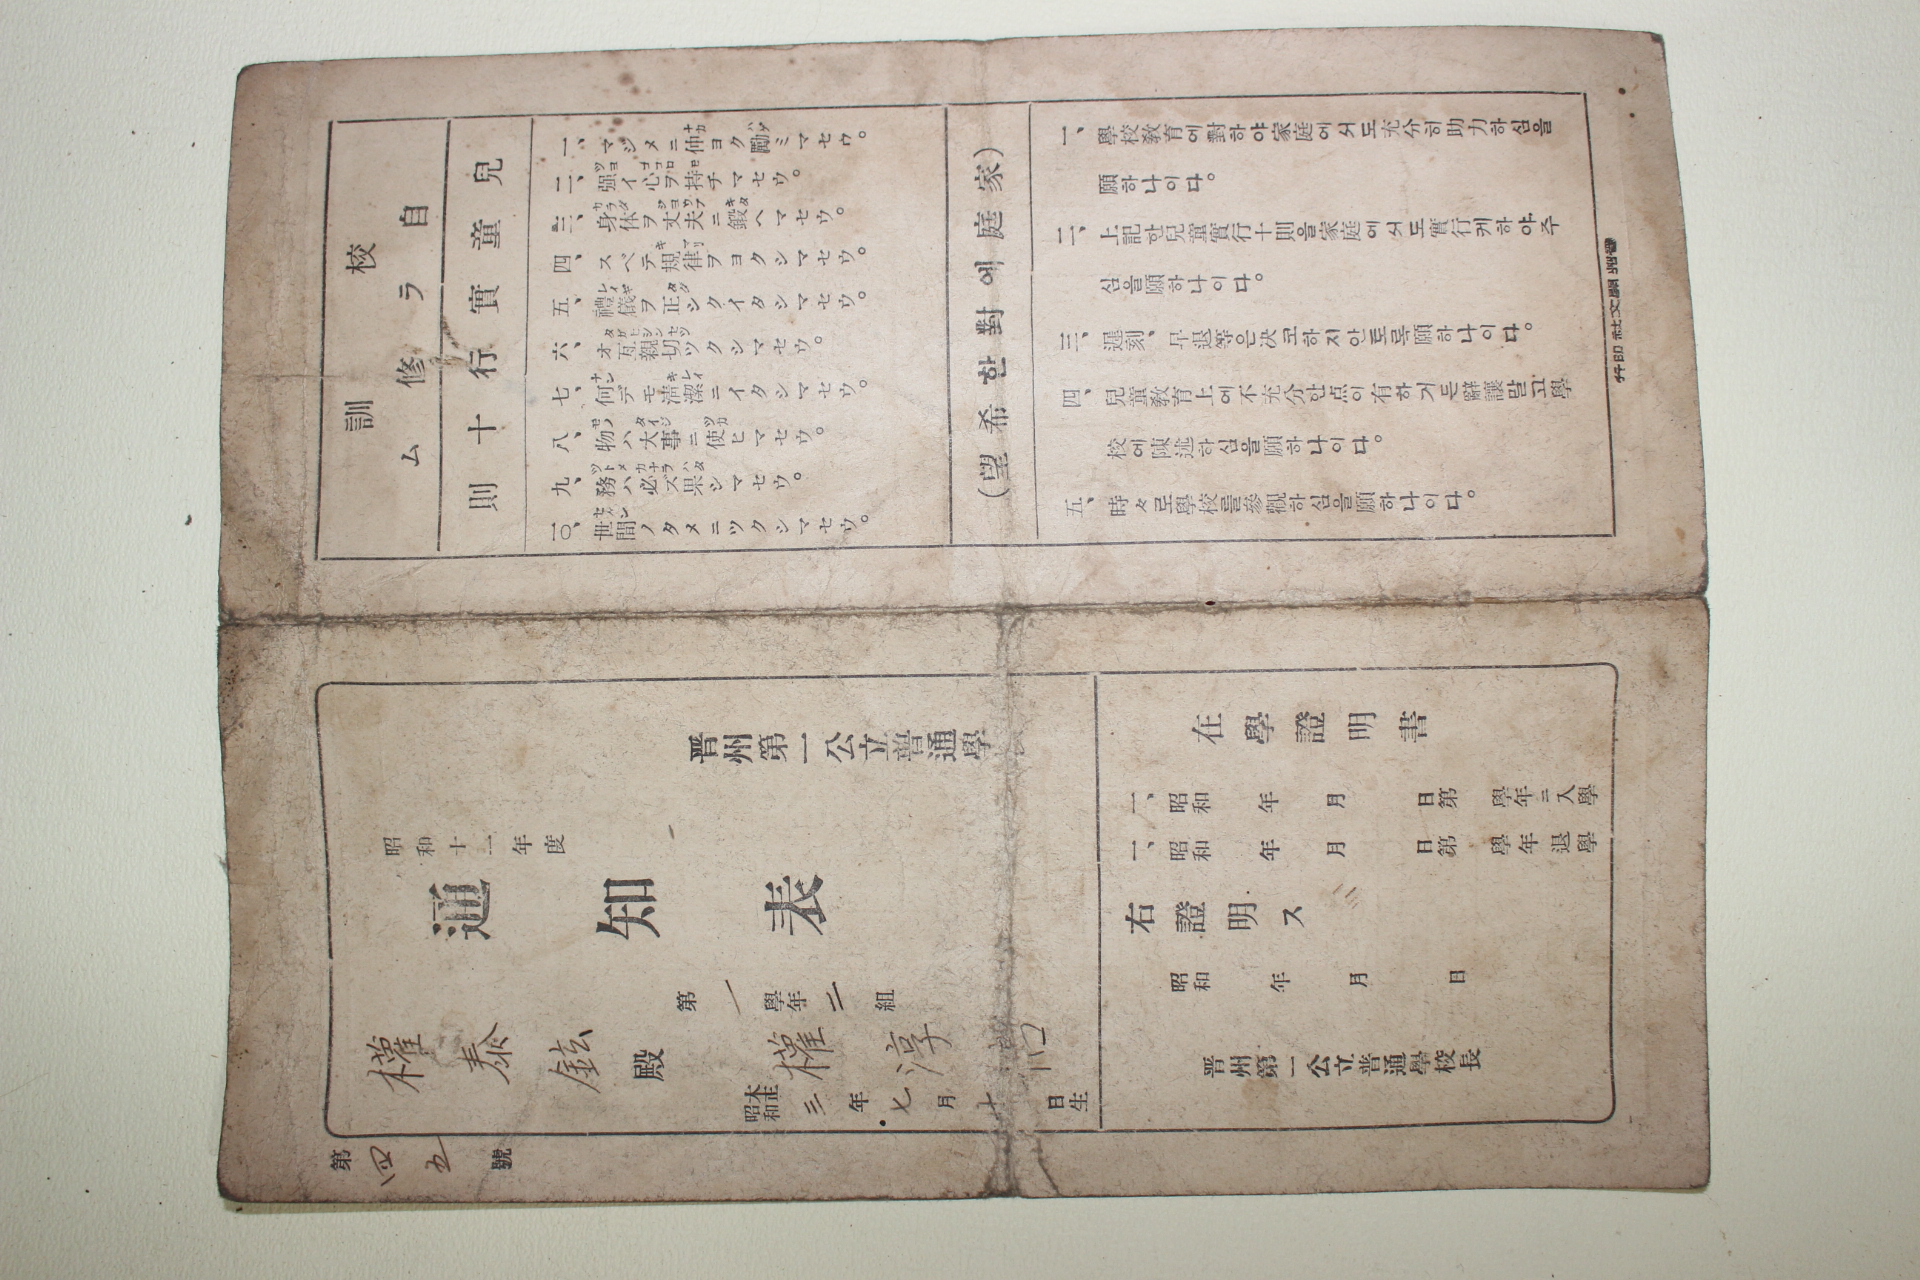 校訓
自ラ修ム
兒童實行十則
一、マジメニ仲ヨク勵ミマセウ。
二、强イ心ヲ持チマセウ。
三、身体ヲ丈夫ニ鍛ヘマセウ。
四、スベテ規律ヲヨクシマセウ。
五、禮儀ヲ正シクイタシマセウ。
六、オ互親切ツクシマセウ。
七、何デモ淸潔ニイタシマセウ。
八、物ハ大事ニ使ヒマセウ。
九、務ハ必ズ果シマセウ。
一〇、世間ノタメニツクシマセウ。
(家庭에對한希望)
一、學校敎育에對하야家庭에서도充分히助力하심을
願하나이다。
二、上記한兒童實行十則을家庭에서도實行케하야주
심을願하나이다。
三、遲刻、早退等은决코하지안토록願하나이다。
四、兒童敎育上에不充分안点이有하거든辭讓말고學
校에陳述하심을願하나이다。
五、時々로學校를參觀하심을願하나이다。
晋州開文社印行
晋州第一公立普通學
昭和十一年度
通知表
第一學年二組
權泰鉉殿
權淳
大正
昭和
三年七月十日生
第四五號
在學證明書
一、昭和 年 月 日第 學年ニ入學
一、昭和 年 月 日第 學年退學
右證明ス
昭和 年 月 日
晋州第一公立普通學校長